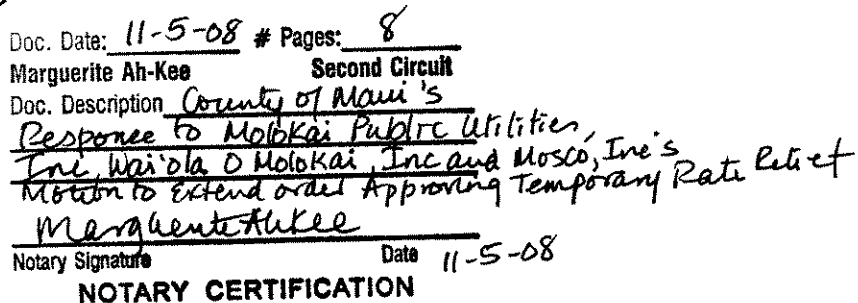 Doc. Date: 11-5-08 # Pages: 8
Marguerite Ah-Kee Second Circuit
Doc. Description County of Maui's
Response to Molokai Public Utilities,
Inc, Wai'ola O Molokai, Inc and Mosco, Inc's
Motion to Extend order Approving Temporary Rate Relief
Marguerite AhKee
Notary Signature Date 11-5-08
NOTARY CERTIFICATION